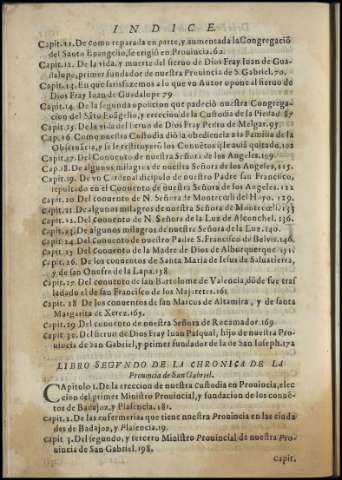 INDICE
Capit. 11. De como reparada en parte, y aumentada la Congregaciõ
del Santo Euangelio, se erigio en Prouincia. 62.
Capit. 12. De la vida, y muerte del sieruo de Dios Fray Iuan de Gua-
dalupe, primer fundador de nuestra Prouincia de S. Gabriel. 70.
Capit. 13. En que satisfazemos a lo que vn Autor opone al sieruo de
Dios Fray Iuan de Guadalupe 79
Capit. 14. De la segunda oposicion que padeciò nuestra Congrega-
cion del Sãto Euãgelio, y ereccion de la Custodia de la Piedad 87
Capit. 15. De la vida del sieruo de Dios Fray Pedro de Melgar. 95.
Cap. 16. Como nuestra Custodia diò la obediencia a la Familia de la
Obseruancia, y se le restituyerõ los Conuẽtos que auia quitado. 102
Capit. 17. Del Conuento de nuestra Señora de los Angeles. 109.
Cap. 18. De algunos milagros de nuestra Señora de los Angeles, 115.
Capit. 19. De vn Cordoual dicipulo de nuestro Padre san Francisco,
sepultado en el Conuento de nuestra Señora de los Angeles. 122
Capit. 20. Del conuento de N. Señora de Montecoeli del Hoyo. 129.
Capit. 21 De algunos milagros de nuestra Señora de Montecœli. 133
Capit. 22. Del conuento de N. Señora de la Luz de Alconchel. 136.
Capit. 23. De algunos milagros de nuestra Señora de la Luz. 140.
Capit. 24 Del conuento de nuestro Padre S. Francisco de Beluis. 146.
Capit. 25 Del conuento de la Madre de Dios de Alburquerque 151
Capit. 26. De los conuentos de Santa Maria de Iesus de Saluatierra,
y de san Onofre de la Lapa. 158.
Capit. 27 Del conuento de san Bartolome de Valencia, dõde fue tras
ladado al de san Francisco de los Majarretes. 161.
Capit. 28 De los conuentos de san Marcos de Altamira, y de santa
Margarita de Xerez. 165.
Capit. 29. Del conuento de nuestra Señora de Rocamador. 169.
Capit. 30. Del sieruo de Dios Fray Iuan Pasqual, hijo de nuestra Pro-
uincia de San Gabriel, y primer fundador de la de San Ioseph. 172
LIBRO SEGVNDO DE LA CHRONICA DE LA
Prouincia de San Gabriel.
CApitulo 1. De la ereccion de nuestra Custodia en Prouincia, elec
cion del primer Ministro Prouincial, y fundacion de los conuẽ-
tos de Badajoz, y Plasencia. 181.
Capit. 2. De las enfermerias que tiene nuestra Prouincia en las ciuda
des de Badajoz, y Plasencia. 19.
capit 3. Del segundo, y tercero Ministro Prouincial de nuestra Pro-
uincia de San Gabriel. 198.
capit.